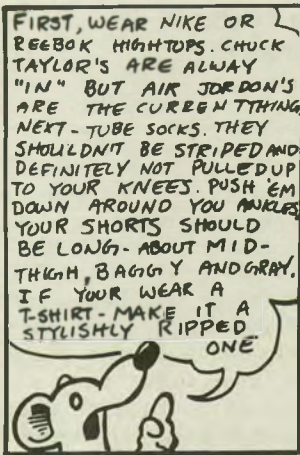 FIRST, WEAR NIKE OR
REEBOK HIGHTOPS. CHUCK
TAYLOR'S ARE ALWAY
"IN" BUT AIR JORDON'S
ARE THE CURRENT THING,
NEXT - TUBE SOCKS. THEY
SHOULDN'T BE STRIPED AND
DEFINITELY NOT PULLED UP
TO YOUR KNEES. PUSH 'EM
DOWN AROUND YOU ANKLES
YOUR SHORTS SHOULD
BE LONG - ABOUT MID-
THIGH, BAGGY AND GRAY.
IF YOUR WEAR A
T-SHIRT - MAKE IT A
STYLISHLY RIPPED
ONE